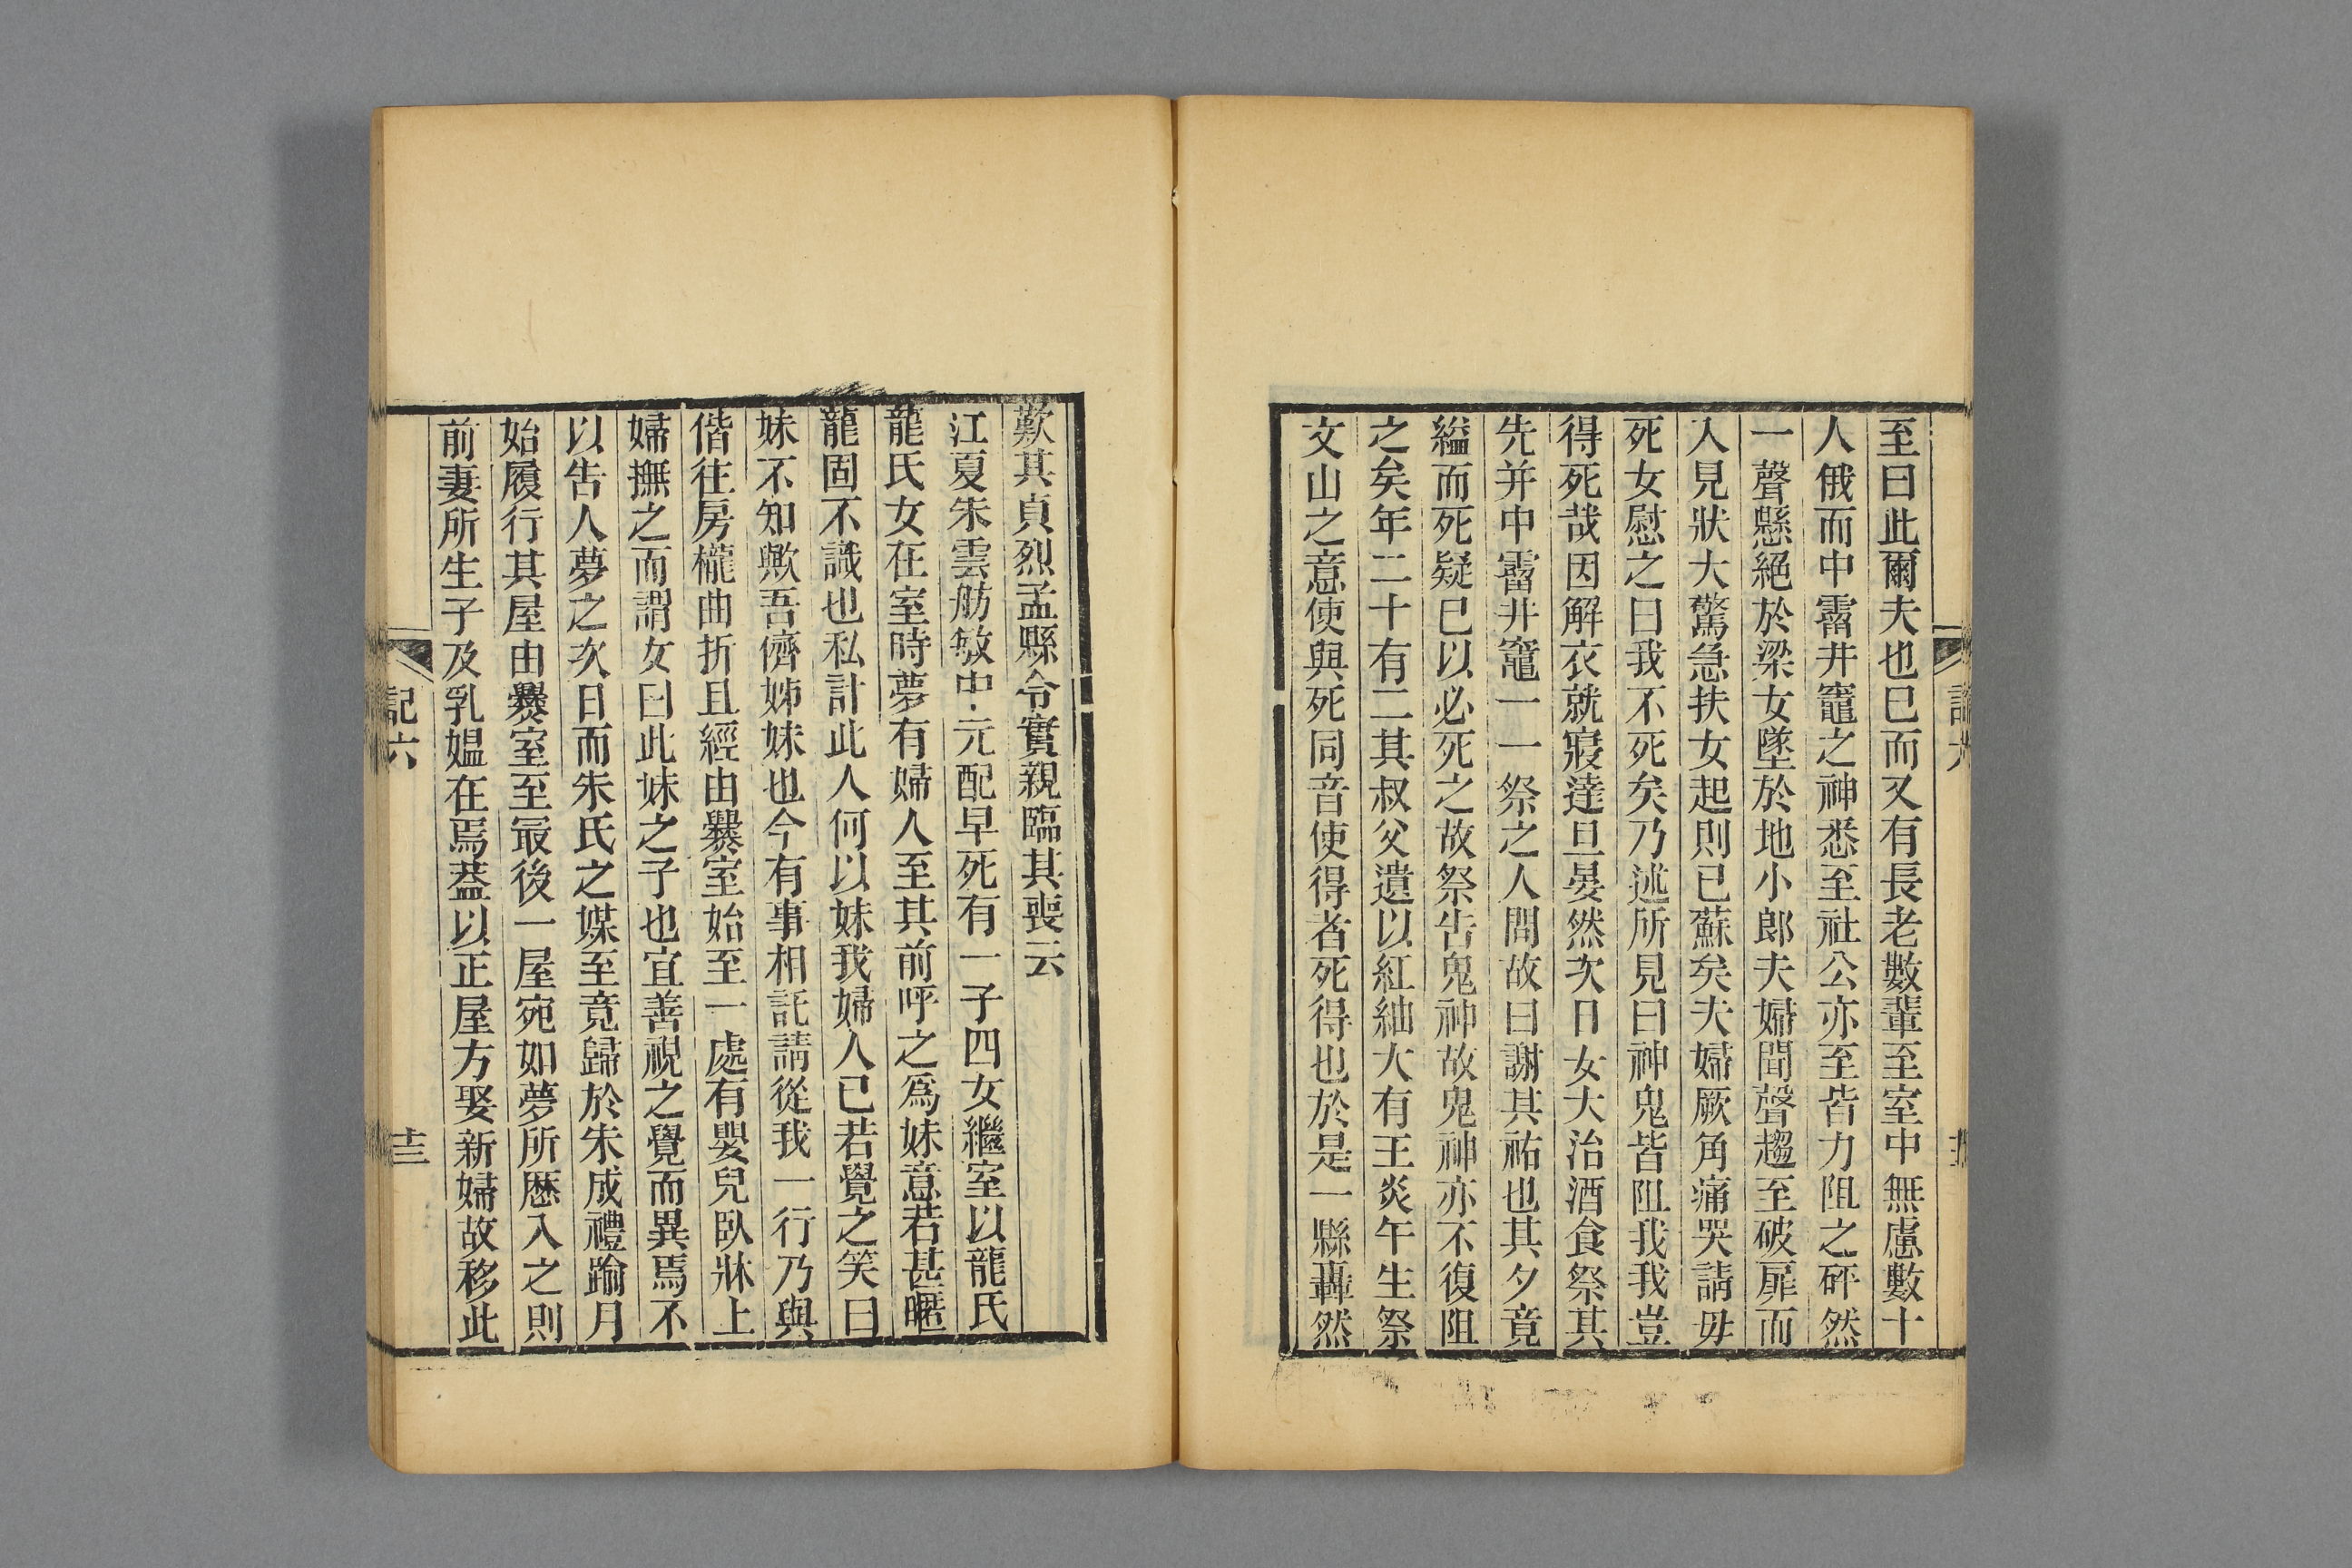 至曰此爾夫也巳而又有長老數輩至室中無慮數十
人俄而中霤井竈之神悉至社公亦至皆力阻之砰然
一聲懸絕於梁女墜於地小郎夫婦聞聲趨至破扉而
入見狀大驚急扶女起則已蘇矣夫婦厥角痛哭請毋
死女慰之曰我不死矣乃述所見曰神鬼皆阻我我豈
得死哉因解衣就寢達旦晏然次日女大治酒食祭其
先并中霤井竈一一祭之人問故曰謝其祐也其夕竟
縊而死疑巳以必死之故祭告鬼神故鬼神亦不復阻
之矣年二十有二其叔父遺以紅紬大有王炎午生祭
文山之意使與死同音使得者死得也於是一縣轟然
歎其貞烈孟縣令實親臨其喪云
江夏朱雲舫敏中元配早死有一子四女繼室以龍氏
龍氏女在室時夢有婦人至其前呼之爲妹意若甚暱
龍固不識也私計此人何以妹我婦人已若覺之笑曰
妹不知歟吾儕姊妹也今有事相託請從我一行乃與
偕往房櫳曲折且經由爨室始至一處有嬰兒臥牀上
婦撫之而謂女曰此妹之子也宜善視之覺而異焉不
以告人夢之次日而朱氏之媒至竟歸於朱成禮踰月
始履行其屋由爨室至最後一屋宛如夢所歷入之則
前妻所生子及乳媼在焉葢以正屋方娶新婦故移此
記六
十三